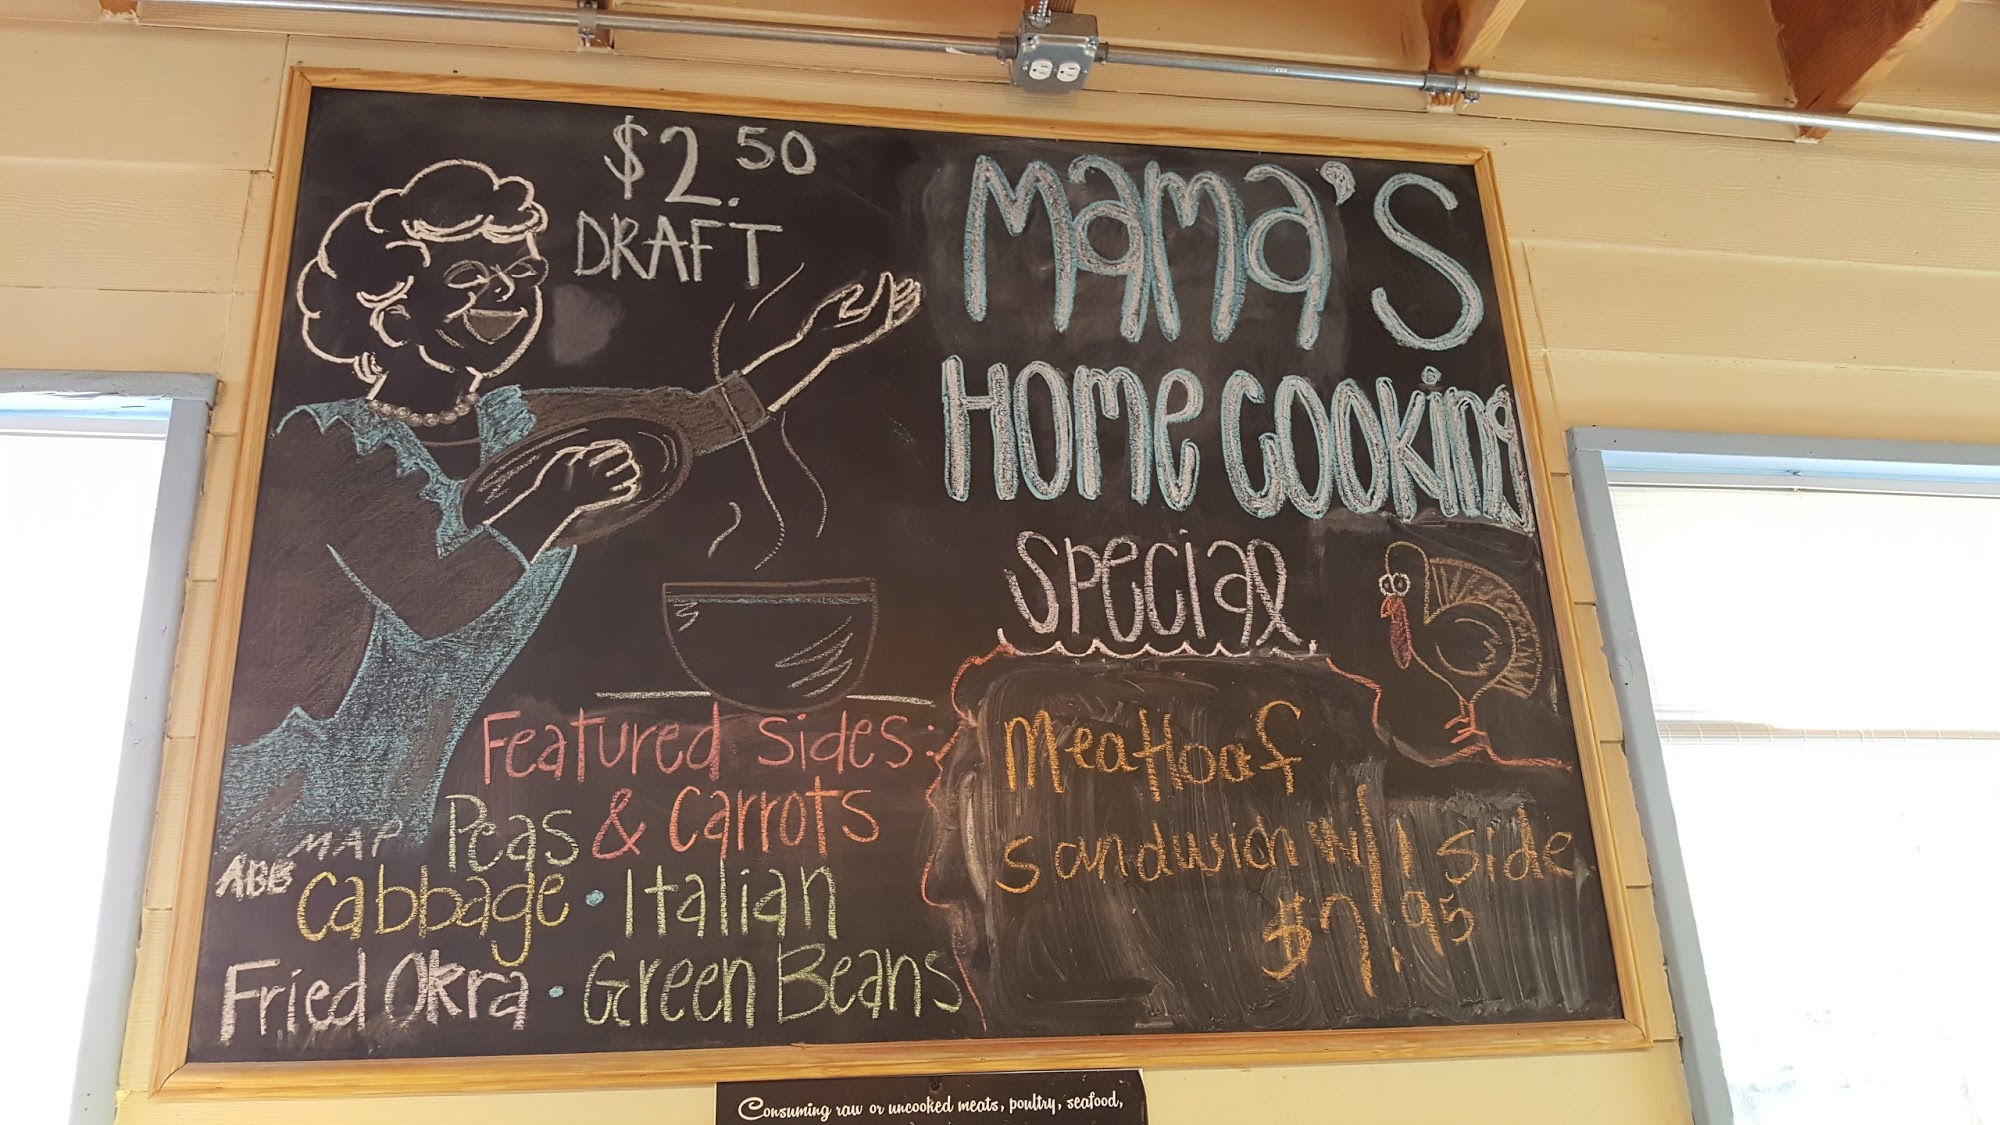 $2.50
DRAFT
Mama's
Home Cooking
Special
Meatloaf
Sandwich w/ 1 side
$7.95
Featured Sides:
Peas & Carrots
Cabbage • Italian
Fried Okra • Green Beans
MAP
ABB
Consuming raw or uncooked meats, poultry, seafood,